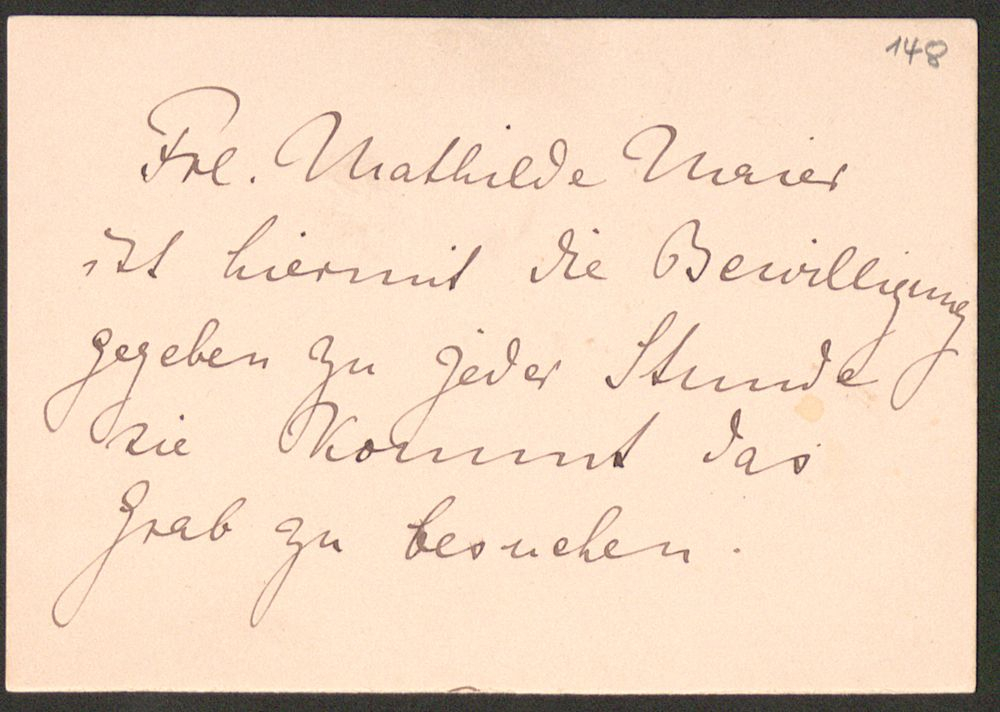 148
Frl. Mathilde Maier
ist hiermit die Bewilligung
gegeben zu jeder Stunde
sie kommt das
Grab zu besuchen.